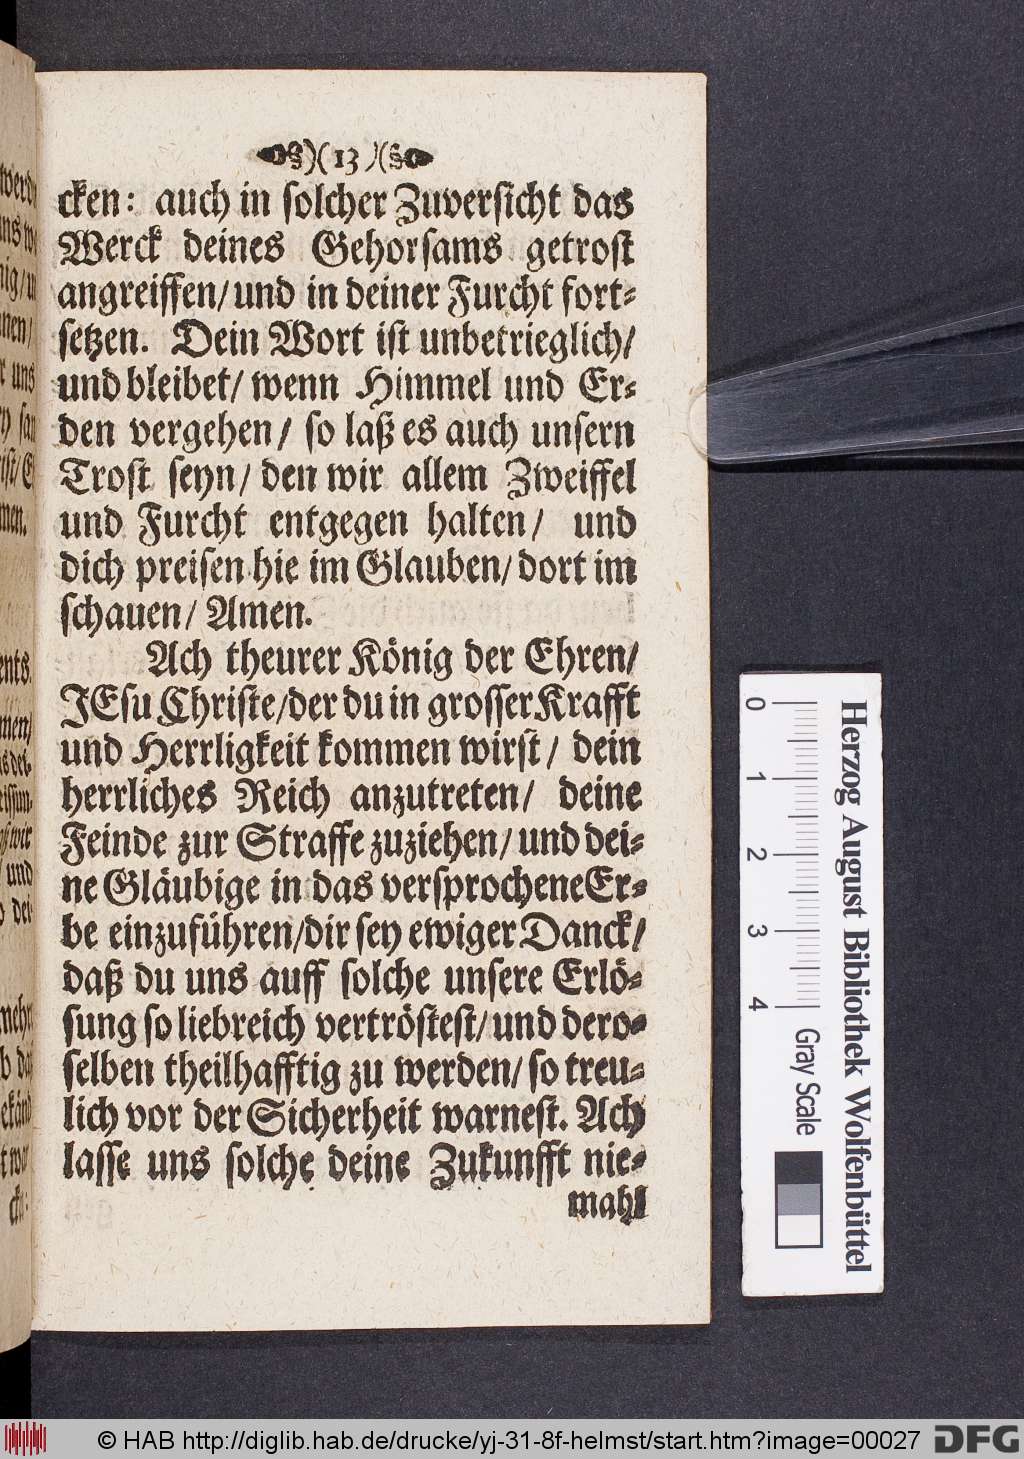 )( 13 )(
cken: auch in solcher Zuversicht das
Werck deines Gehorsams getrost
angreiffen/ und in deiner Furcht fort-
setzen. Dein Wort ist unbetrieglich/
und bleibet/ wenn Himmel und Er-
den vergehen/ so laß es auch unsern
Trost seyn/ den wir allem Zweiffel
und Furcht entgegen halten/ und
dich preisen hie im Glauben/ dort im
schauen/ Amen.
Ach theurer König der Ehren/
JEsu Christe/ der du in grosser Krafft
und Herrligkeit kommen wirst/ dein
herrliches Reich anzutreten/ deine
Feinde zur Straffe zuziehen/ und dei-
ne Gläubige in das versprochene Er-
be einzuführen/ dir sey ewiger Danck/
daß du uns auff solche unsere Erlö-
sung so liebreich vertröstest/ und dero-
selben theilhafftig zu werden/ so treu-
lich vor der Sicherheit warnest. Ach
lasse uns solche deine Zukunfft nie-
mahl
Herzog August Bibliothek Wolfenbüttel
0 1 2 3 4 Gray Scale
© HAB http://diglib.hab.de/drucke/yj-31-8f-helmst/start.htm?image=00027
DFG